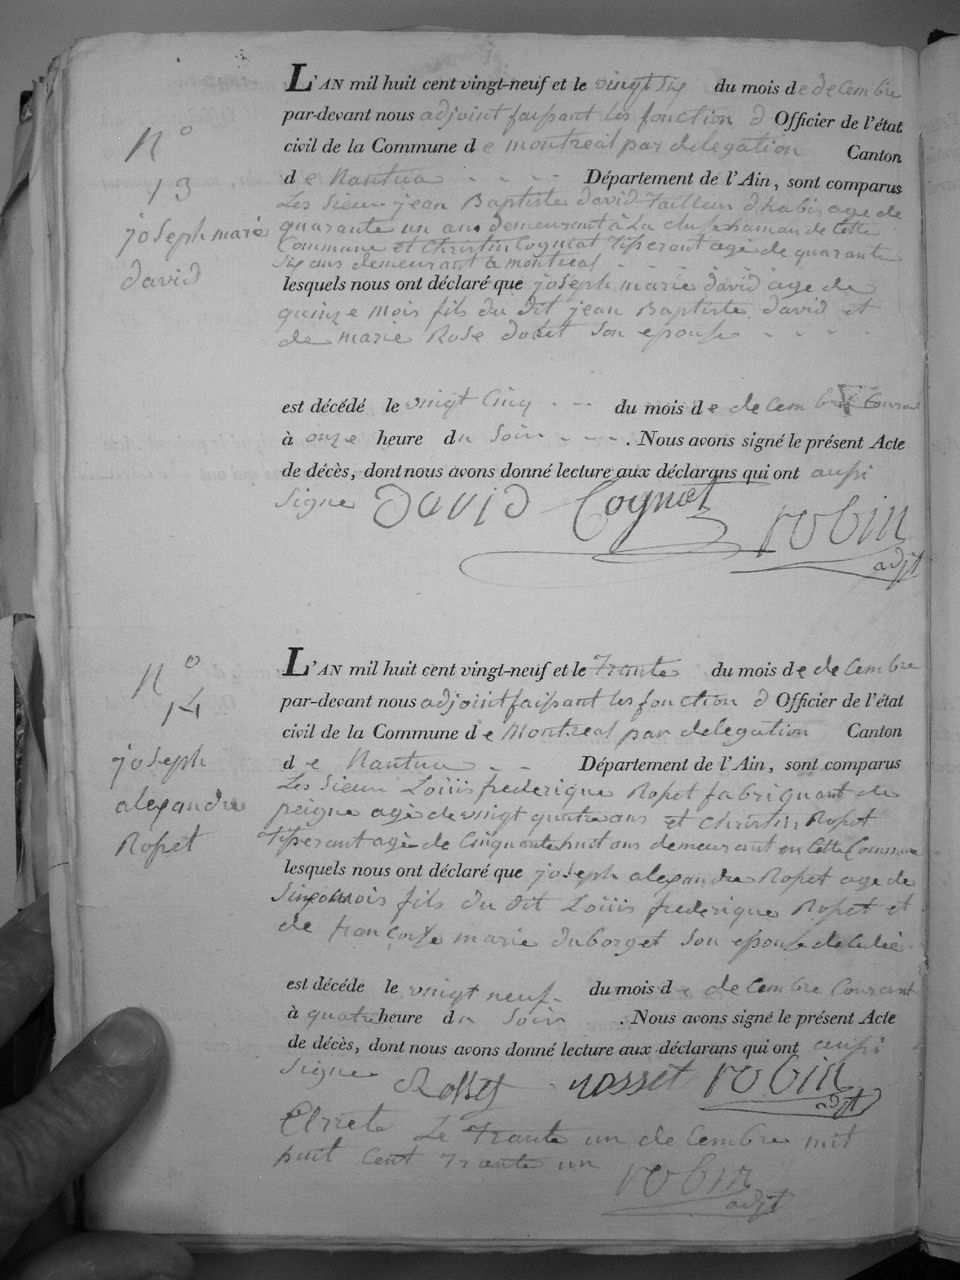 L'AN mil huit cent vingt-neuf et le vingt Six du mois de decembre
par-devant nous adjoint faissant les fonction d Officier de l'état
civil de la Commune de montreal par delegation Canton
N°
13
joseph marie
david
de Nantua - - - - Département de l'Ain, sont comparus
Les Sieur jean Baptiste david Tailleur d habis age de
quarante un ans demeurant à La cluse hamau de Cette
Commune et Christin Cognat Tisserant agé de quarante
Six ans demeurant a montreal - -
lesquels nous ont déclaré que joseph marie david age de
quinze mois fils du dit jean Baptiste david et
de marie Rose son epouse - - - -
est décédé le vingt Cinq - - - du mois de decembre Courant
à onze heure du Soir - - - - . Nous avons signé le présent Acte
de décès, dont nous avons donné lecture aux déclarans qui ont aussi
Signe DAVID Cognat robin
adjt
L'AN mil huit cent vingt-neuf et le Trante du mois de decembre
par-devant nous adjoint faissant les fonction d Officier de l'état
civil de la Commune de Montreal par delegation Canton
N°
14
joseph
alexandre
Rosset
de Nantua - - Département de l'Ain, sont comparus
Les Sieur Louiis frederique Rosset fabriquant de
peigne agé de vingt quatre ans et Christin Rosset
Tisserant agé de Cinquante huit ans demeurant en Cette Commune
lesquels nous ont déclaré que joseph alexandre Rosset age de
mois fils du dit Louiis frederique Rosset et
de françoise marie duborget son epouse
est décédé le vingt neuf - du mois de decembre Courant
à quatre heure du Soir . Nous avons signé le présent Acte
de décès, dont nous avons donné lecture aux déclarans qui ont aussi
Signe Rosset rosset robin
adjt
Le Trante un decembre mil
huit Cent Trante un
robin
adjt